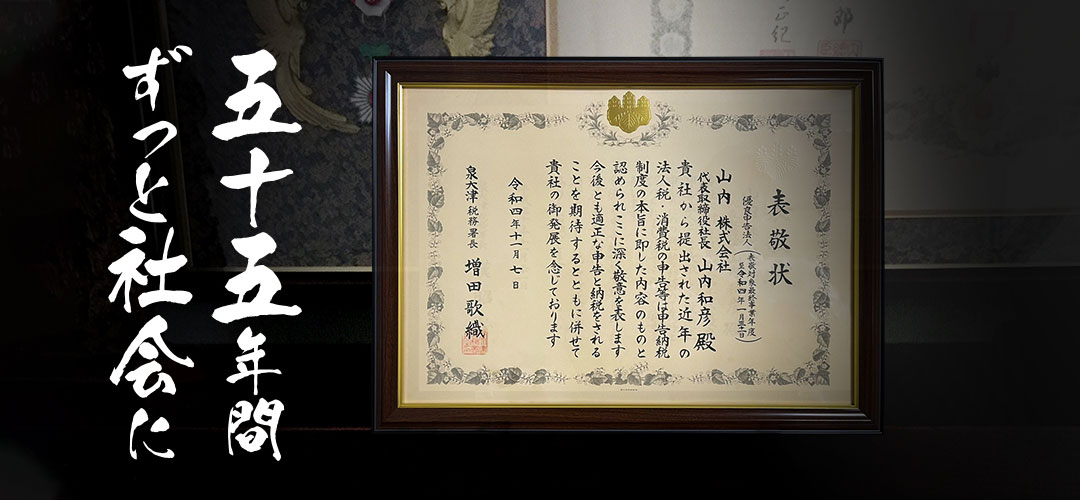 五十五年間
ずっと社会に
表敬状
優良申告法人
(表敬対象最終事業年度
至令和四年一月三十一日)
山内 株式会社
代表取締役社長 山内和彦 殿
貴社から提出された近年の
法人税・消費税の申告等は申告納税
制度の本旨に即した内容のものと
認められここに深く敬意を表します
今後とも適正な申告と納税をされる
ことを期待するとともに併せて
貴社の御発展を念じております
令和四年十一月七日
泉大津税務署長 増田歌織